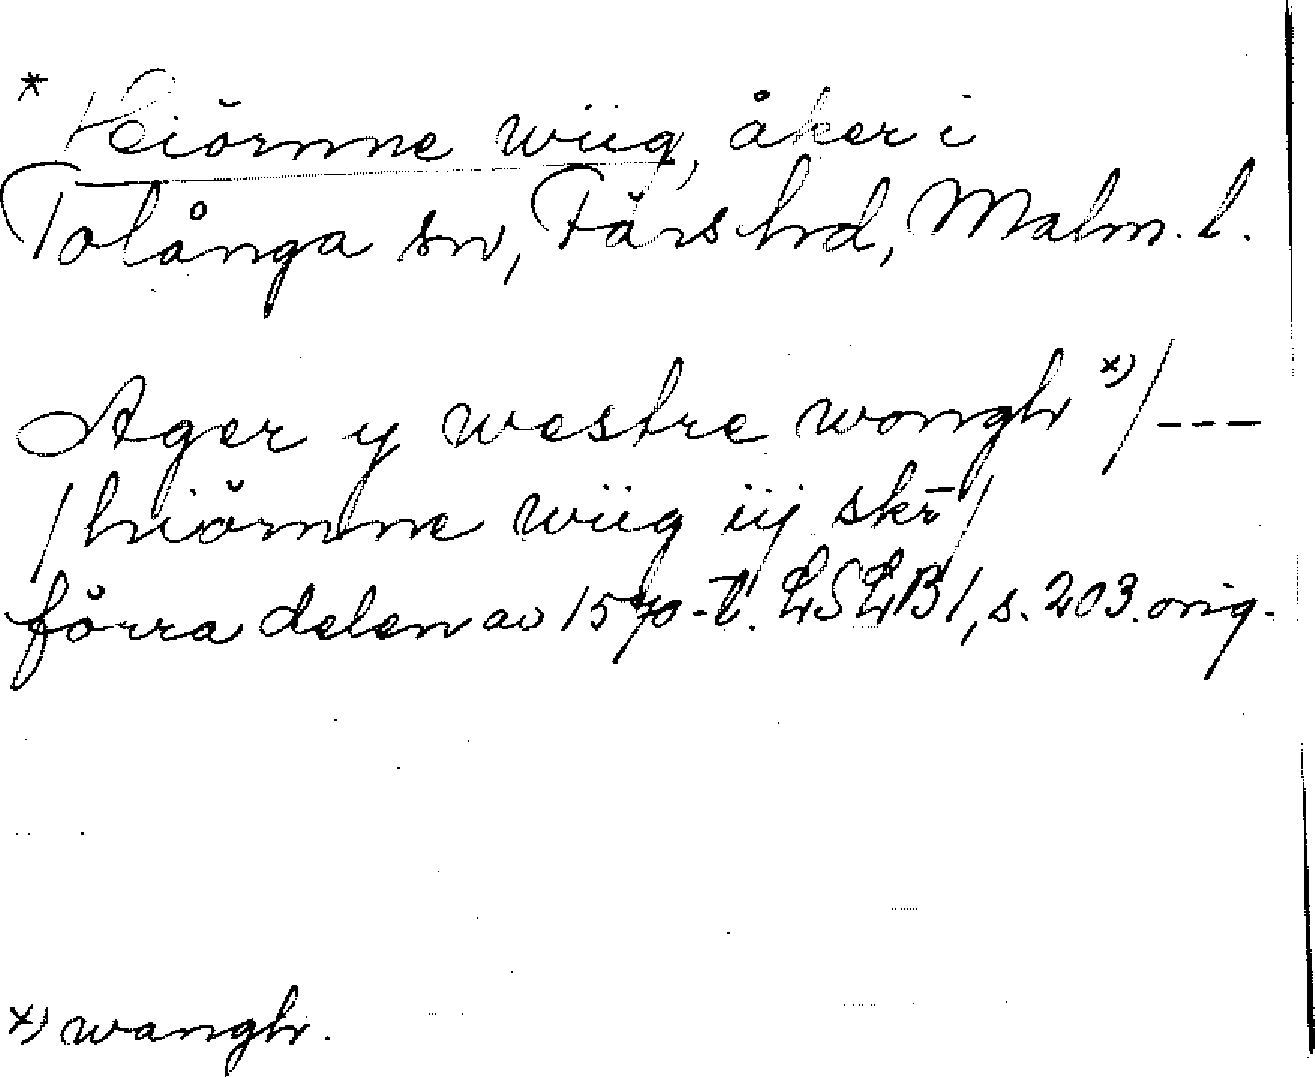 * Hiörnne wiig, åker i
Tolånga sn, Färs hrd, Malm. l.
Ager y westre wongh *) / ---
/ hiörnne wiig iij skr̄ /
förra delen av 1570-t. LSLB 1, s. 203. orig.
*) wangh.